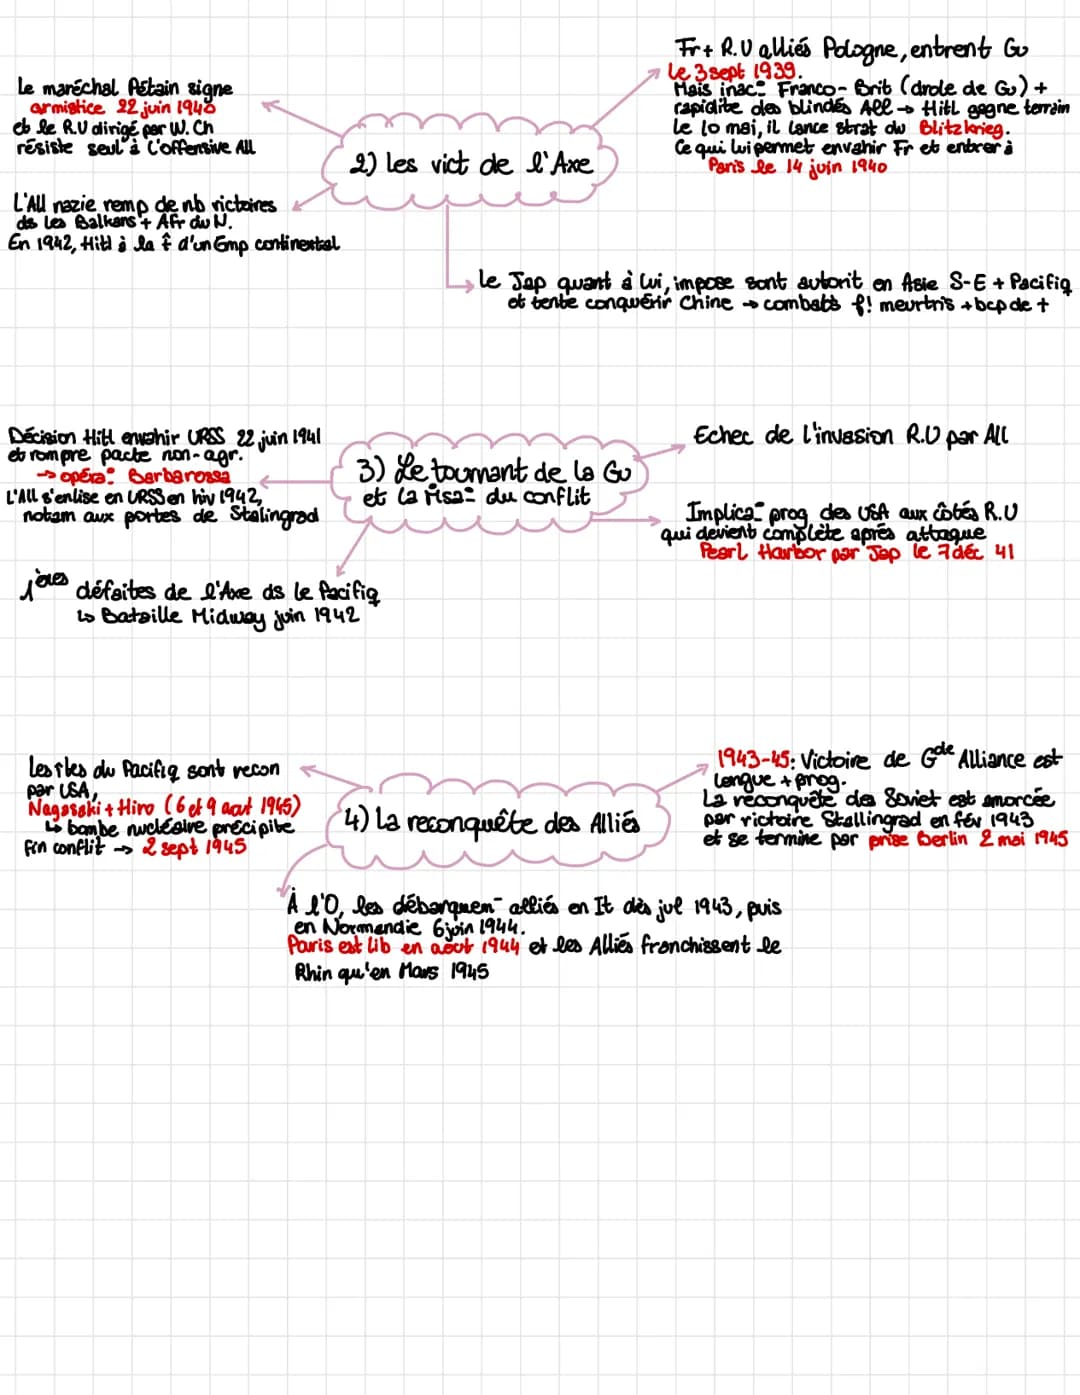 Fr + R.U alliés Pologne, entrent Gu
Le 3 sept 1939.
Mais inac° Franco-Brit (drole de Gu) +
rapidite des blindés All → Hitl gagne terrain
Le 10 mai, il lance strat du Blitzkrieg.
Ce qui lui permet envahir Fr et entrer à
Paris le 14 juin 1940
Le maréchal Pétain signe
armistice 22 juin 1940
et le R.U dirigé par W. Ch
résiste seul à l'offensive All
2) les vict de l'Axe
L'All nazie remp de nb victoires
ds les Balkans + Afr du N.
En 1942, Hitl à la t̂ d'un Emp continental
le Jap quant à lui, impose sont autorit en Asie S-E + Pacifiq
et tente conquérir Chine → combats f! meurtris + bcp de +
Décision Hitl envahir URSS 22 juin 1941
et rompre pacte non-agr.
→ opéra° Barbarossa
L'All s'enlise en URSS en hiv 1942,
notam aux portes de Stalingrad
3) Le tournant de la Gu
et la Misa° du conflit
Echec de l'invasion R.U par All
Implica° prog des USA aux côtés R.U
qui devient complète après attaque
Pearl Harbor par Jap le 7 déc 41
1ères défaites de l'Axe ds le Pacifiq
↳ Bataille Midway juin 1942
les îles du Pacifiq sont recon
par USA,
Nagasaki + Hiro (6 et 9 aout 1945)
↳ bombe nucléaire précipite
fin conflit → 2 sept 1945
4) La reconquête des Alliés
1943-45: Victoire de Gde Alliance est
longue + prog.
La reconquête des Soviet est amorcée
par victoire Stallingrad en fév 1943
et se termine par prise Berlin 2 mai 1945
À l'O, les débarquem- alliés en It dès juil 1943, puis
en Normandie 6 juin 1944.
Paris est lib en août 1944 et les Alliés franchissent le
Rhin qu'en Mars 1945